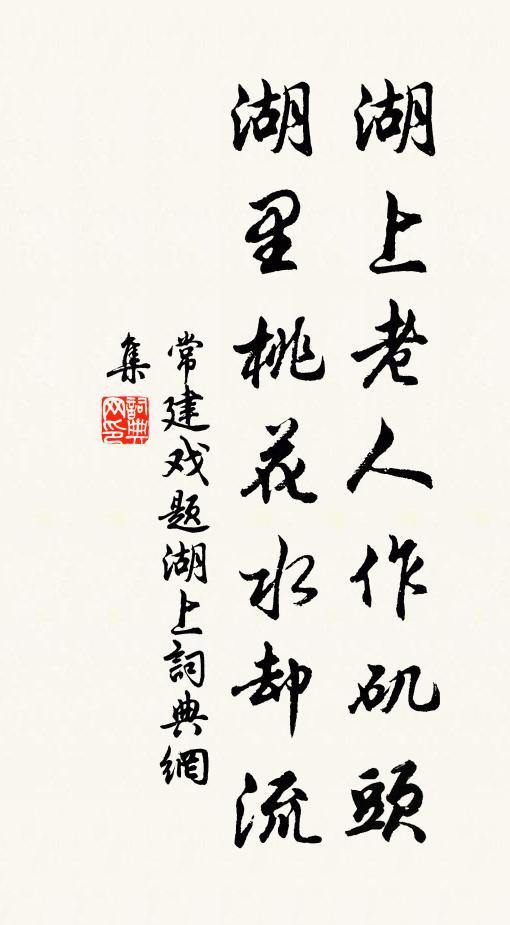 湖上老人作矶頭
湖里桃花水却流
常建戏题湖上詞典網
集
詞典网印